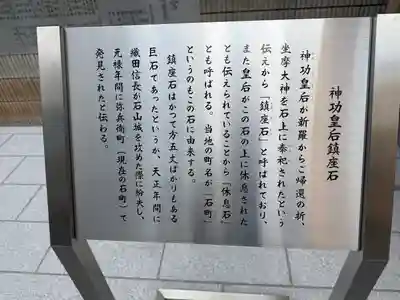 神功皇后鎮座石
神功皇后が新羅からご帰還の折、
坐摩大神を石上に奉祀されたという
伝えから「鎮座石」と呼ばれており、
また皇后がこの石の上に休息された
とも伝えられていることから「休息石」
とも呼ばれる。当地の町名が「石町」
というのもこの石に由来する。
鎮座石はかつて方五丈ばかりもある
巨石であったというが、天正年間に
織田信長が石山城を攻めた際に紛失し、
元禄年間に弥兵衛町(現在の石町)で
発見されたと伝わる。